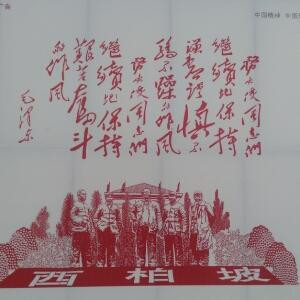 务必使同志们
继续地保持
谦虚谨慎不
骄不躁的作风
务必使同志们
继續地保持
艱苦奋斗
的作风
毛泽东
西柏坡
中国精神